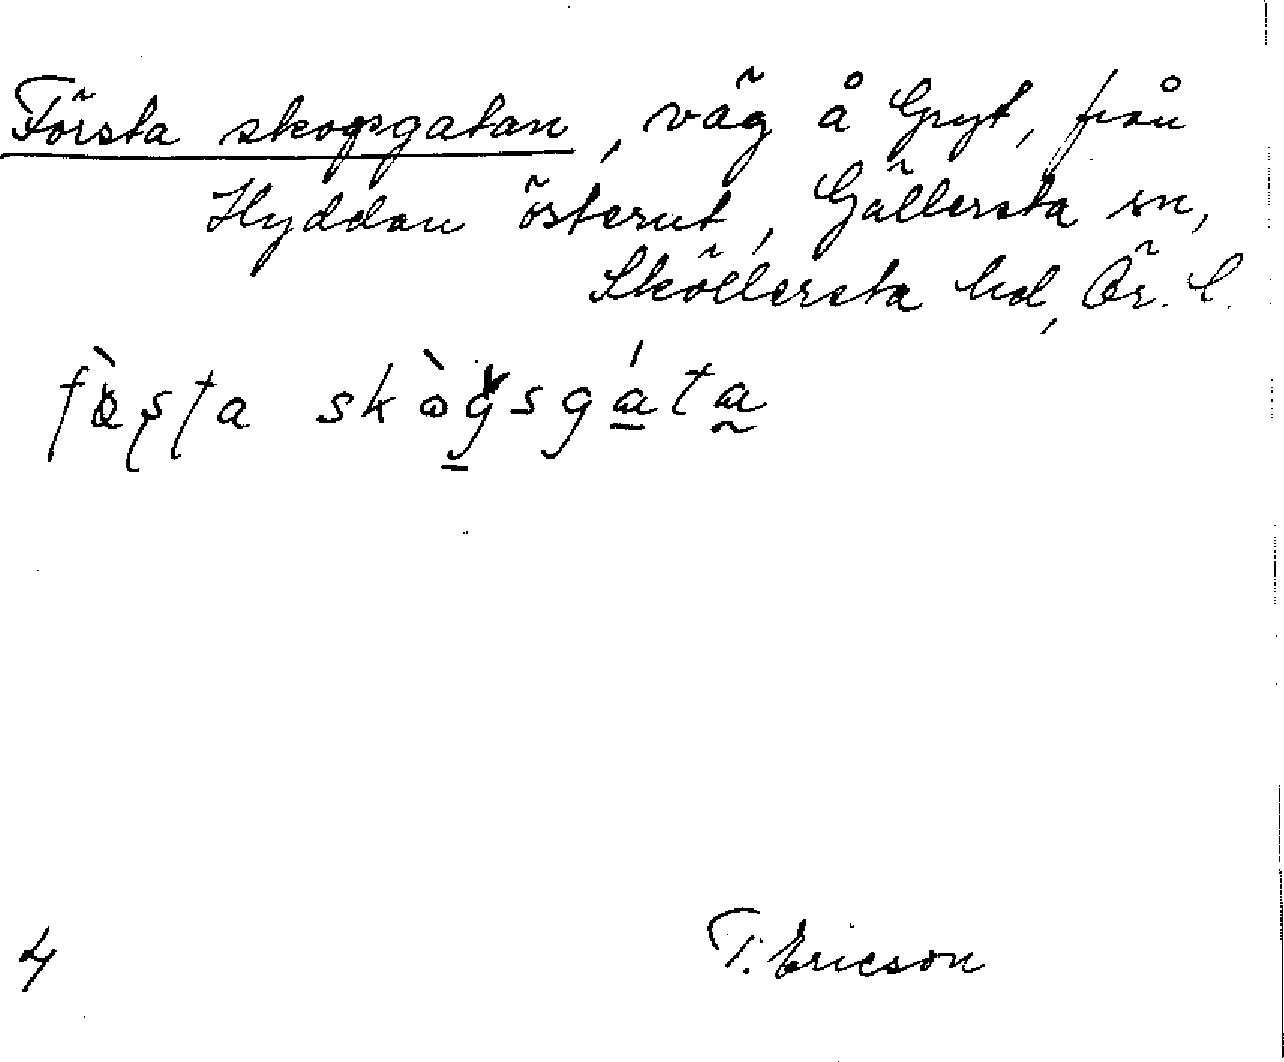 Första skogsgatan, väg å Gryt, från
Hyddan österut, Gällersta sn,
Sköllersta hd, Ör. l.
fɵ̀ʂʈa skògsgáta
4
T. Ericson